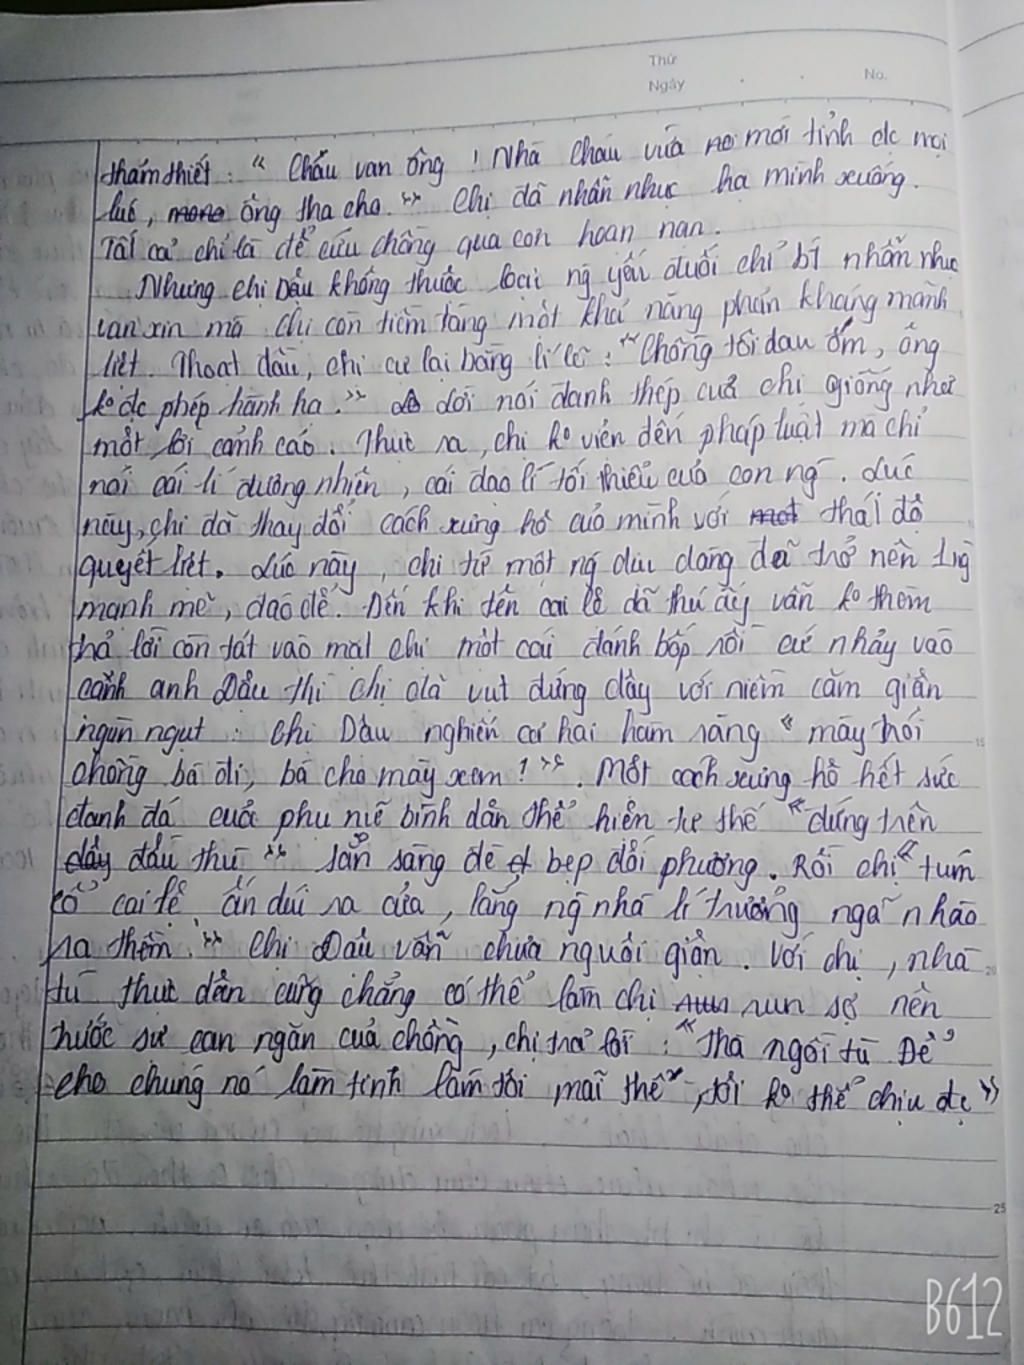 Thứ
Ngày . . No.
thảm thiết : " Cháu van ông ! Nhà cháu vừa mới tỉnh đc mọi
lúc, ông tha cho. " Chị đã nhẫn nhục hạ mình xuống.
Tất cả chỉ là để cứu chồng qua cơn hoạn nạn.
Nhưng chị Dậu không thuộc loại ng yếu đuối chỉ bt nhẫn nhục
van xin mà chị còn tiềm tàng một khả năng phản kháng mãnh
liệt. Thoạt đầu, chị cự lại bằng lí lẽ : "Chồng tôi đau ốm, ông
ko đc phép hành hạ. " Lời nói đanh thép của chị giống như
một lời cảnh cáo. Thực ra, chị ko viện đến pháp luật mà chỉ
nói cái lí đương nhiên, cái đạo lí tối thiểu của con ng. Lúc
này, chị đã thay đổi cách xưng hô của mình với thái độ
quyết liệt. Lúc này, chị từ một ng dịu dàng đã trở nên 1 ng
mạnh mẽ, đáo để. Đến khi tên cai lệ dã thú ấy vẫn ko thèm
trả lời còn tát vào mặt chị một cái đánh bốp rồi cứ nhảy vào
cạnh anh Dậu thì chị đã vụt đứng dậy với niềm căm giận
ngùn ngụt : Chị Dậu nghiến cả hai hàm răng " mày trói
chồng bà đi, bà cho mày xem ! ". Một cách xưng hô hết sức
đanh đá của phụ nữ bình dân thể hiện tư thế " đứng trên
đầu thù " sẵn sàng đè bẹp đối phương. Rồi chị " túm
cổ cai lệ ấn dúi ra cửa, lẳng ng nhà lí trưởng ngã nhào
ra thềm. " Chị Dậu vẫn chưa nguôi giận. Với chị, nhà
tù thực dân cũng chẳng có thể làm chị run sợ nên
trước sự can ngăn của chồng, chị trả lời : " Thà ngồi tù. Để
cho chúng nó làm tình làm tội mãi thế, tôi ko thể chịu đc "
15
20
25
B612